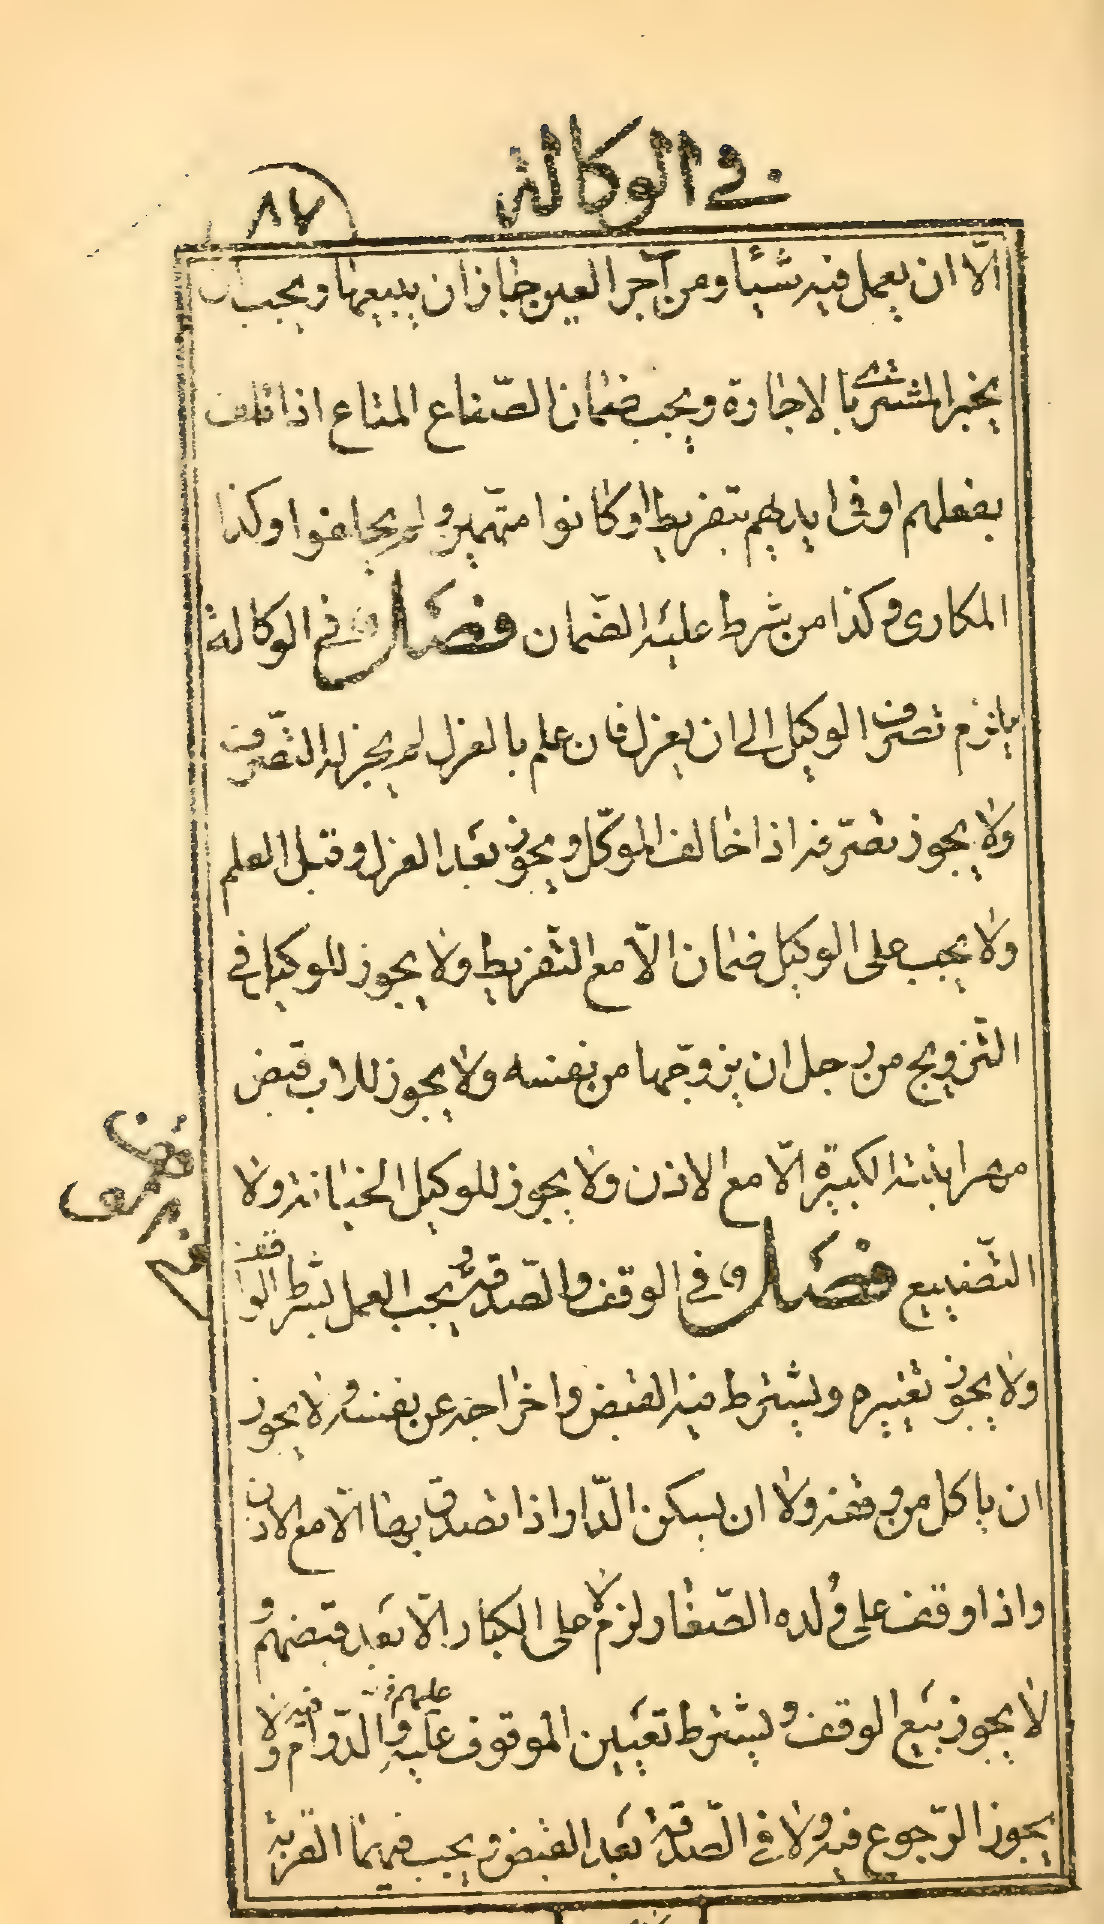 في الوكالة
٨٧
الّا ان يعمل فيه شيئا ومن آجر العين جاز ان يبيعها ويجب ان
يخبر المشتري بالاجارة ويجب ضمان الصّناع المتاع اذا تلف
بفعلهم او في ايديهم بتفريط او كانوا متهمين ولم يحلفوا وكذا
المكارى وكذا من شرط عليه الضمان فصل في الوكالة
يلزم تصرف الوكيل الى ان يعزل فان علم بالعزل لم يجز له التصّرف
ولا يجوز تصّرفه اذا خالف الموكّل ويجوز بعد العزل وقبل العلم
ولا يجب على الوكيل ضمان الّا مع التّفريط ولا يجوز للوكيل في
التّزويج من رجل ان يزوّجها من نفسه ولا يجوز للاب قبض
مهر ابنته الكبيرة الّا مع الاذن ولا يجوز للوكيل الخيانة ولا
التّضييع فصل في الوقف والصّدقة يجب العمل بشرط الواقف
ولا يجوز تغييره ويشترط فيه القبض واخراجه عن نفسه ولا يجوز
ان ياكل من وقفه ولا ان يسكن الدّار اذا تصدق بها الّا مع الاذن
واذا وقف على ولده الصّغار لزم لا على الكبار الّا بعد قبضهم و
لا يجوز بيع الوقف ويشترط تعيين الموقوف عليه والدّوام ولا
عليهم
يجوز الرّجوع فيه ولا في الصّدقة بعد القبض ويجب فيهما القربة